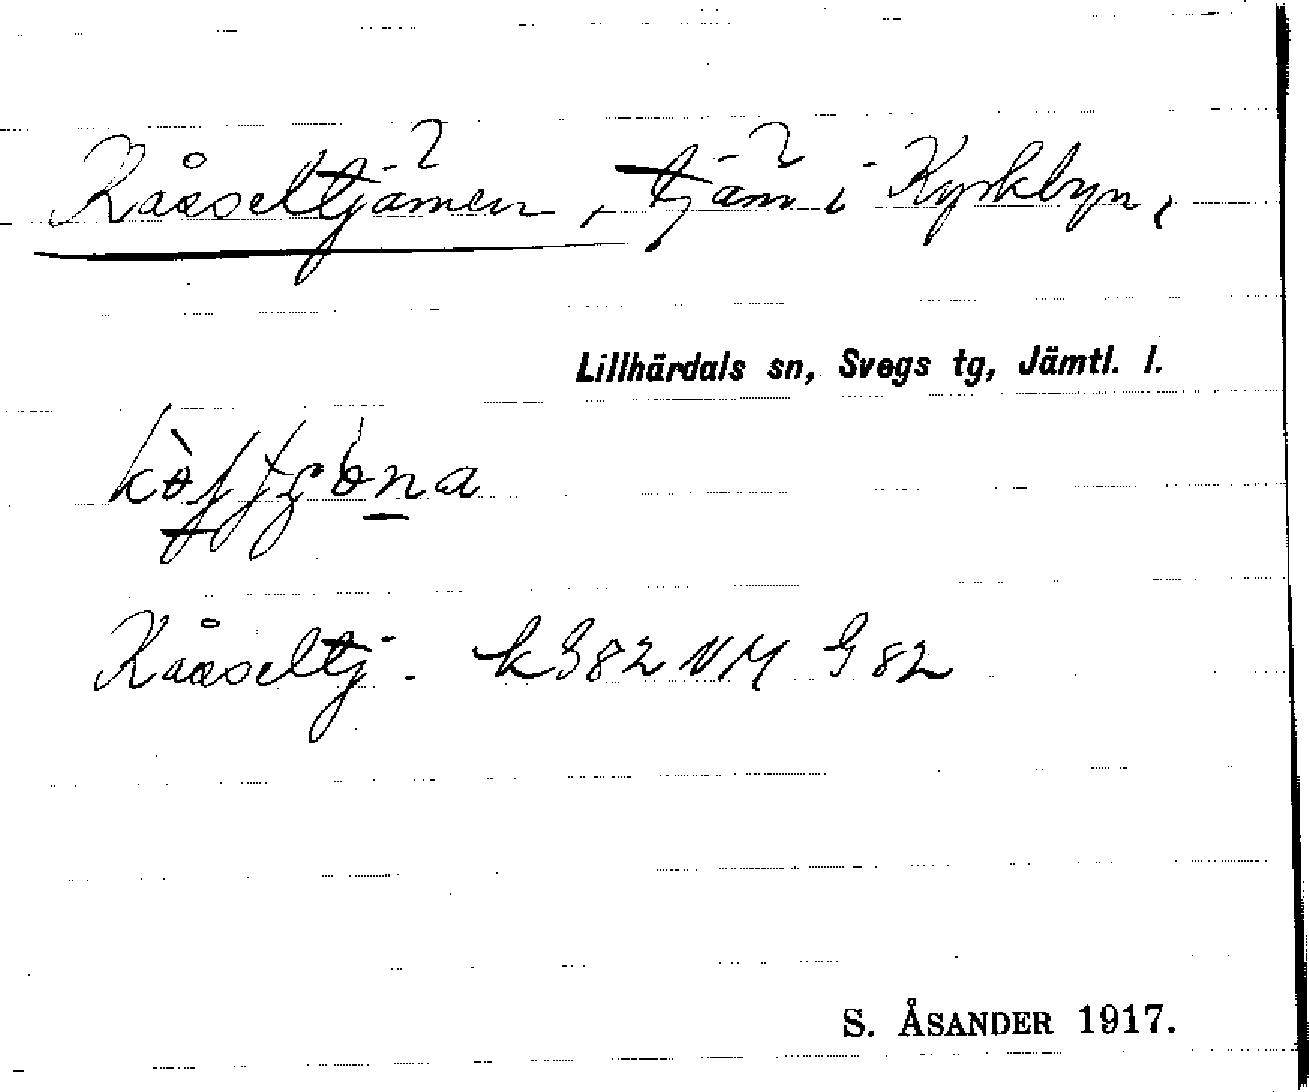 Kåaseltjärnen, tjärn i Kyrkbyn,
Lillhärdals sn, Svegs tg, Jämtl. l.
Kåaseltj. k 382 NM G 82
S. ÅSANDER 1917.